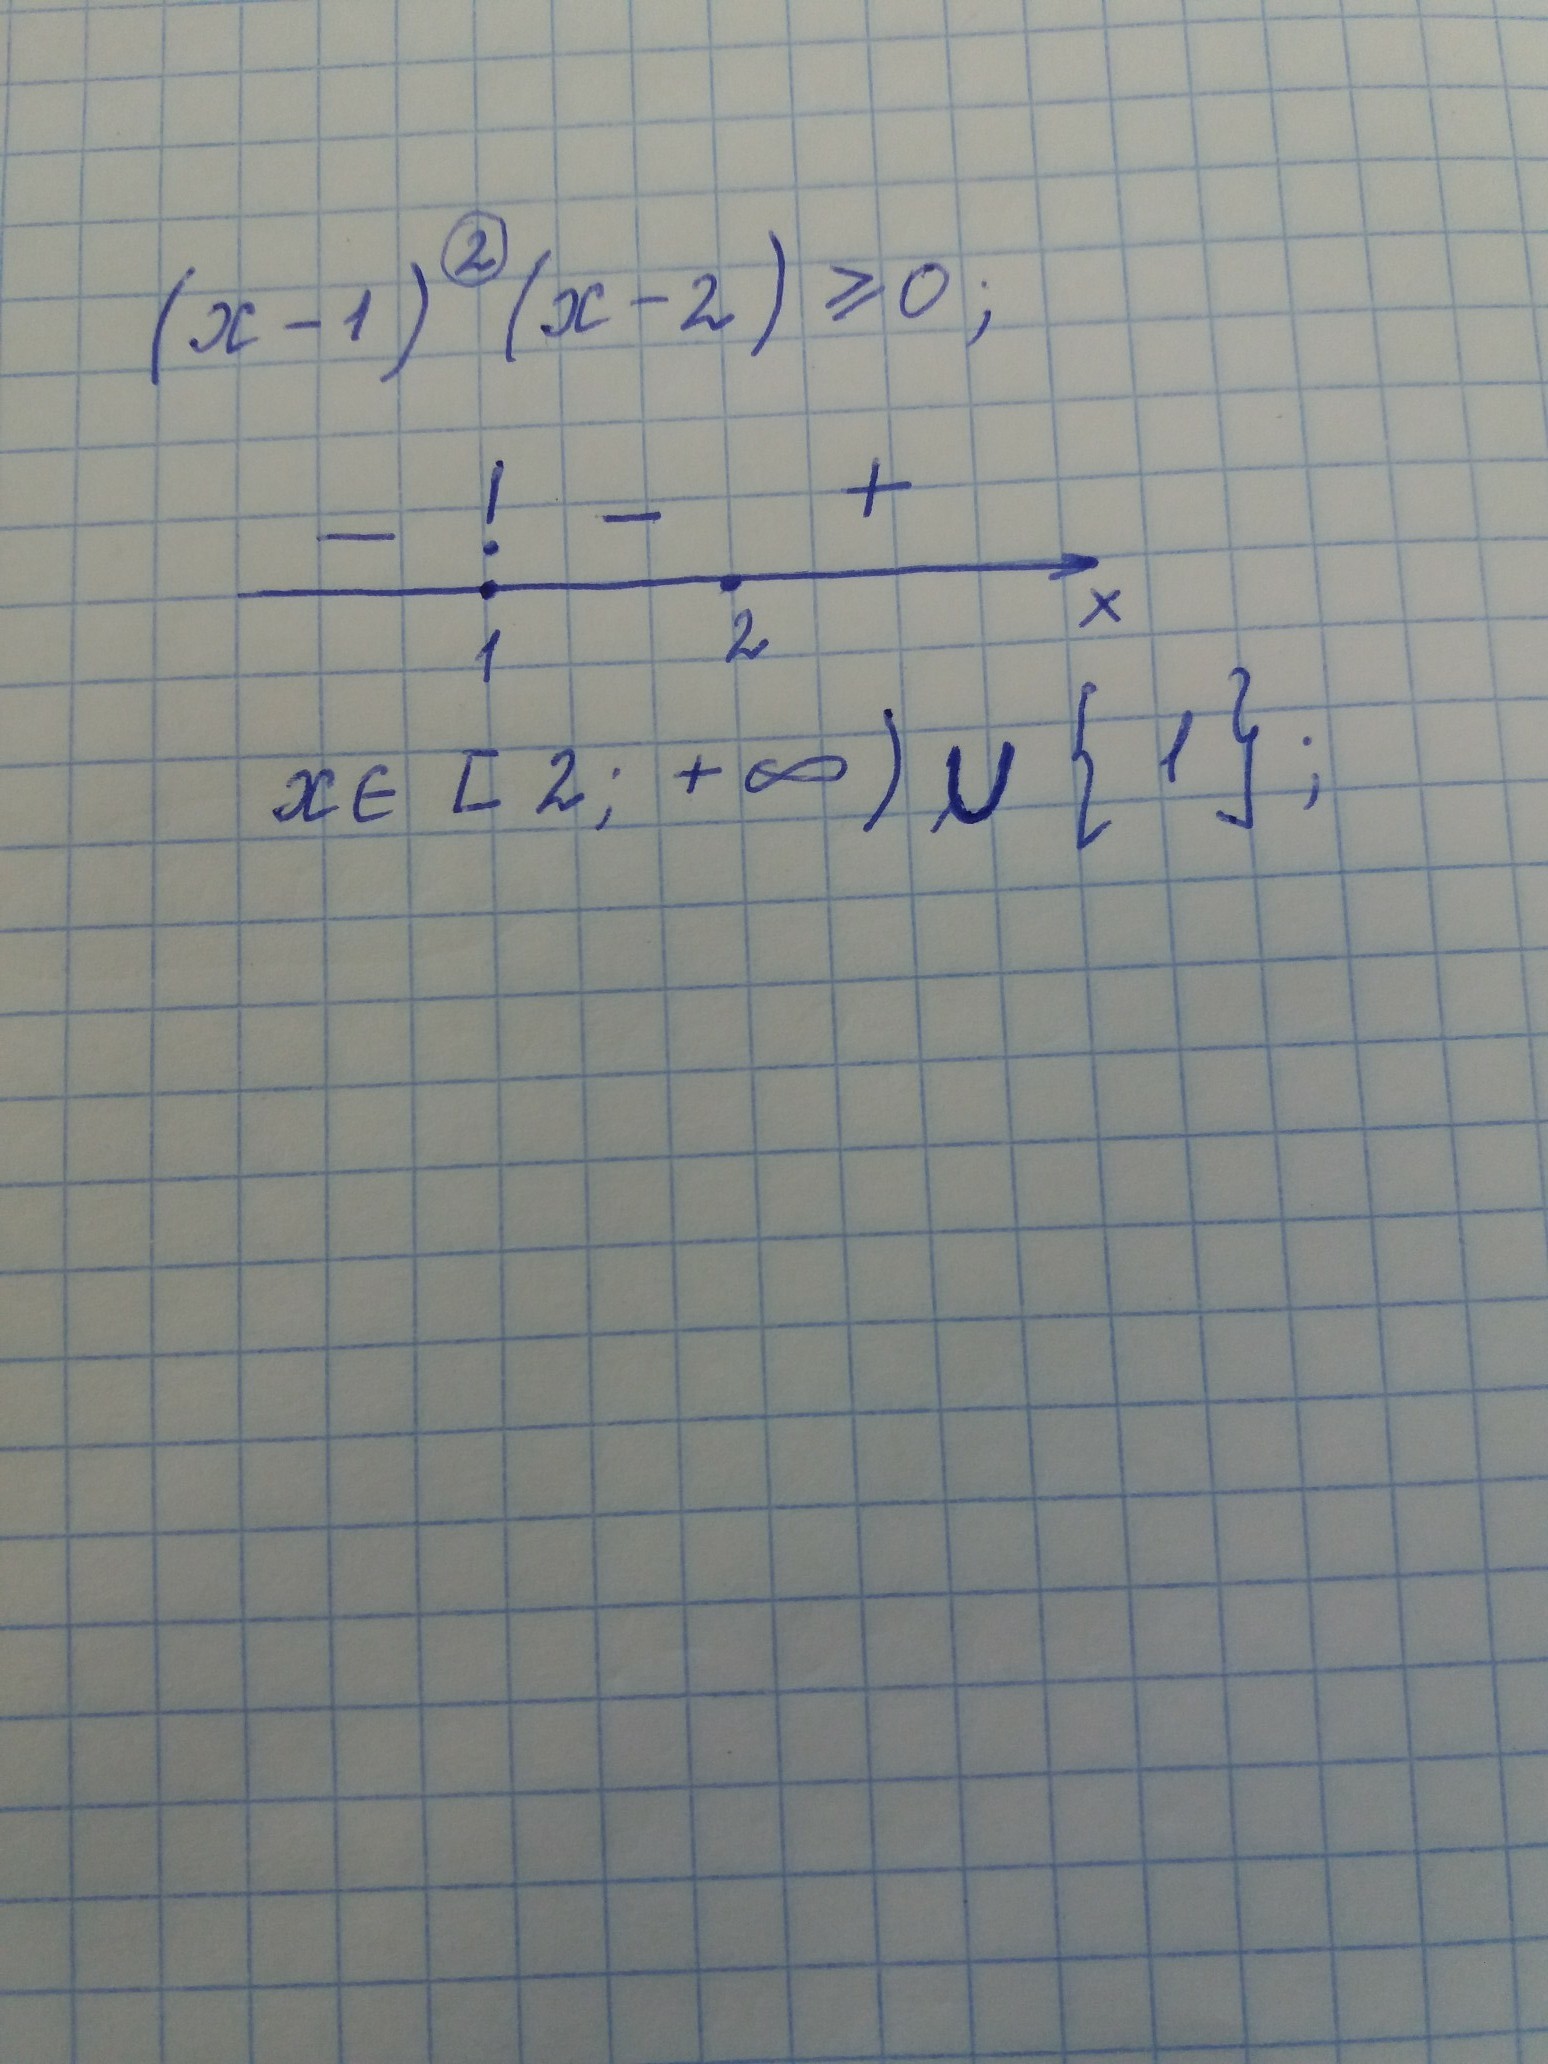 (x-1)²(x-2)≥0;
− ! − +
1 2 x
x∈[2;+∞)∪{1};